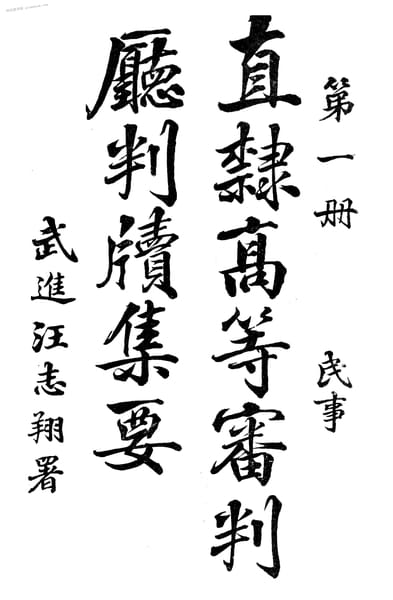 第一册 民事
直隸高等審判
廳判牘集要
武進汪志翔署